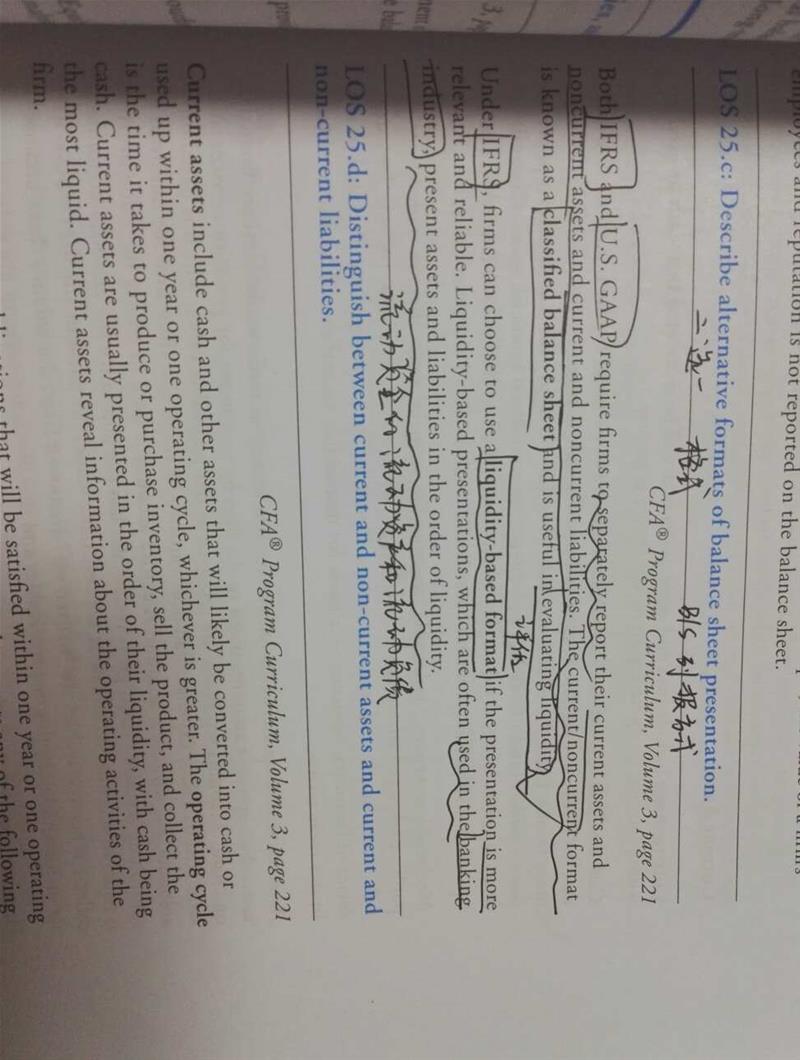 employees and reputation is not reported on the balance sheet.
LOS 25.c: Describe alternative formats of balance sheet presentation.
二选一 格式 B/S 列报方式
CFA® Program Curriculum, Volume 3, page 221
Both IFRS and U.S. GAAP require firms to separately report their current assets and
noncurrent assets and current and noncurrent liabilities. The current/noncurrent format
is known as a classified balance sheet and is useful in evaluating liquidity.
评估
Under IFRS, firms can choose to use a liquidity-based format if the presentation is more
relevant and reliable. Liquidity-based presentations, which are often used in the banking
industry, present assets and liabilities in the order of liquidity.
LOS 25.d: Distinguish between current and non-current assets and current and
non-current liabilities.
CFA® Program Curriculum, Volume 3, page 221
Current assets include cash and other assets that will likely be converted into cash or
used up within one year or one operating cycle, whichever is greater. The operating cycle
is the time it takes to produce or purchase inventory, sell the product, and collect the
cash. Current assets are usually presented in the order of their liquidity, with cash being
the most liquid. Current assets reveal information about the operating activities of the
firm.
that will be satisfied within one year or one operating
of the following